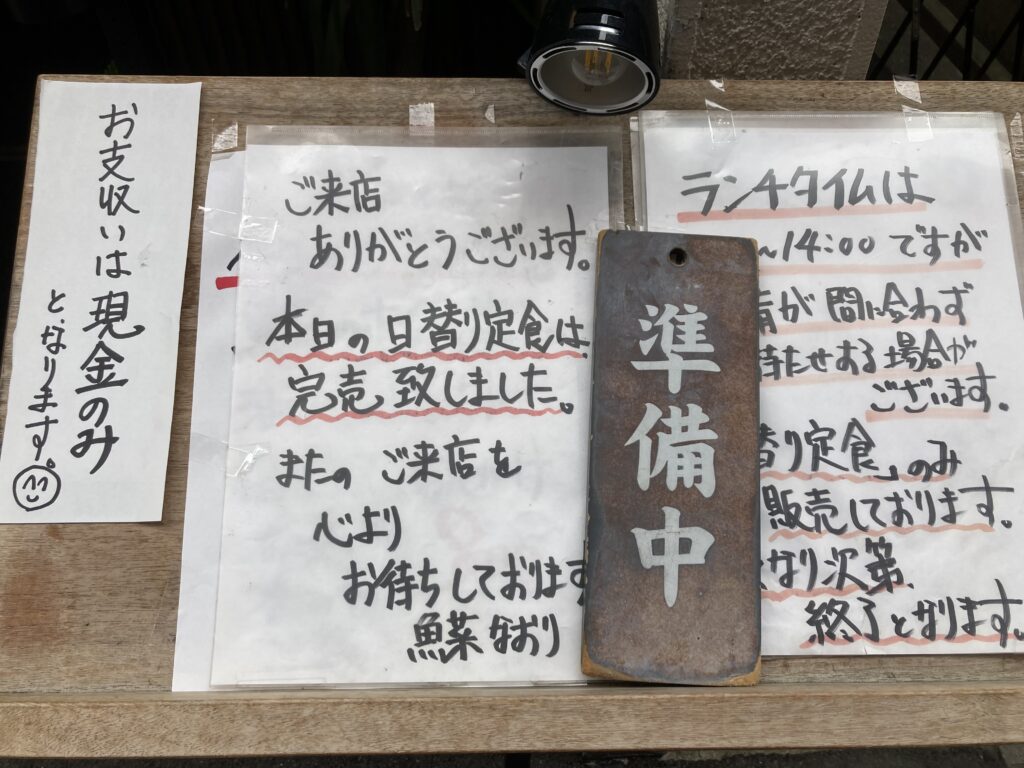 お支払いは現金のみ
となります。
ご来店
ありがとうございます。
本日の日替り定食は
完売致しました。
またのご来店を
心より
お待ちしております
魚菜なおり
準備中
ランチタイムは
〜14:00ですが
が間に合わず
待たせする場合が
ございます。
替り定食」のみ
販売しております。
なり次第、
終了となります。